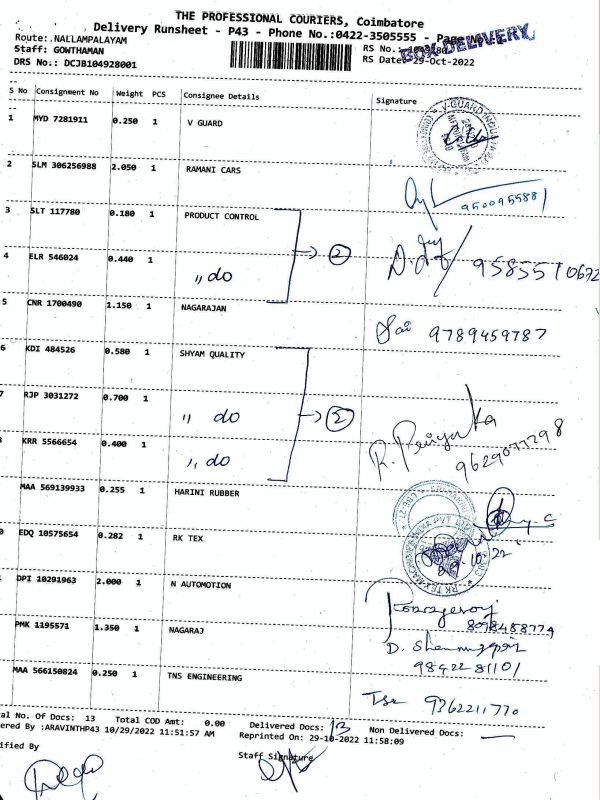 THE PROFESSIONAL COURIERS, Coimbatore
Delivery Runsheet - P43 - Phone No.:0422-3505555 - Page No
BOX DELIVERY
Route:.NALLAMPALAYAM
Staff: GOWTHAMAN
RS No.:
DRS No.: DCJB104928001
RS Date: 29-Oct-2022
S No Consignment No Weight PCS Consignee Details Signature
1 MYD 7281911 0.250 1 V GUARD
2 SLM 306256988 2.050 1 RAMANI CARS
9500955881
3 SLT 117780 0.180 1 PRODUCT CONTROL
4 ELR 546024 0.440 1 ,, do
2
9585510672
5 CNR 1700490 1.150 1 NAGARAJAN
Sai 9789459787
6 KDI 484526 0.580 1 SHYAM QUALITY
7 RJP 3031272 0.700 1 ,, do
R. Priyanka
KRR 5566654 0.400 1 ,, do
9629077298
MAA 569139933 0.255 1 HARINI RUBBER
EDQ 10575654 0.282 1 RK TEX
DPI 10291963 2.000 1 N AUTOMOTION
8098488774
PMK 1195571 1.350 1 NAGARAJ
9842281101
MAA 566150824 0.250 1 TNS ENGINEERING
9362211770
al No. Of Docs: 13 Total COD Amt: 0.00 Delivered Docs: 13 Non Delivered Docs: —
ered By :ARAVINTHP43 10/29/2022 11:51:57 AM Reprinted On: 29-10-2022 11:58:09
ified By Staff Signature